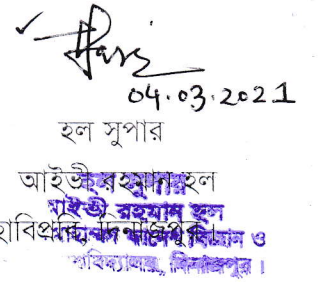 04.03.2021
হল সুপার
আইভী রহমান হল
হাবিপ্রবি, দিনাজপুর।
হল সুপার
আইভী রহমান হল
বিজ্ঞান ও
দিনাজপুর।